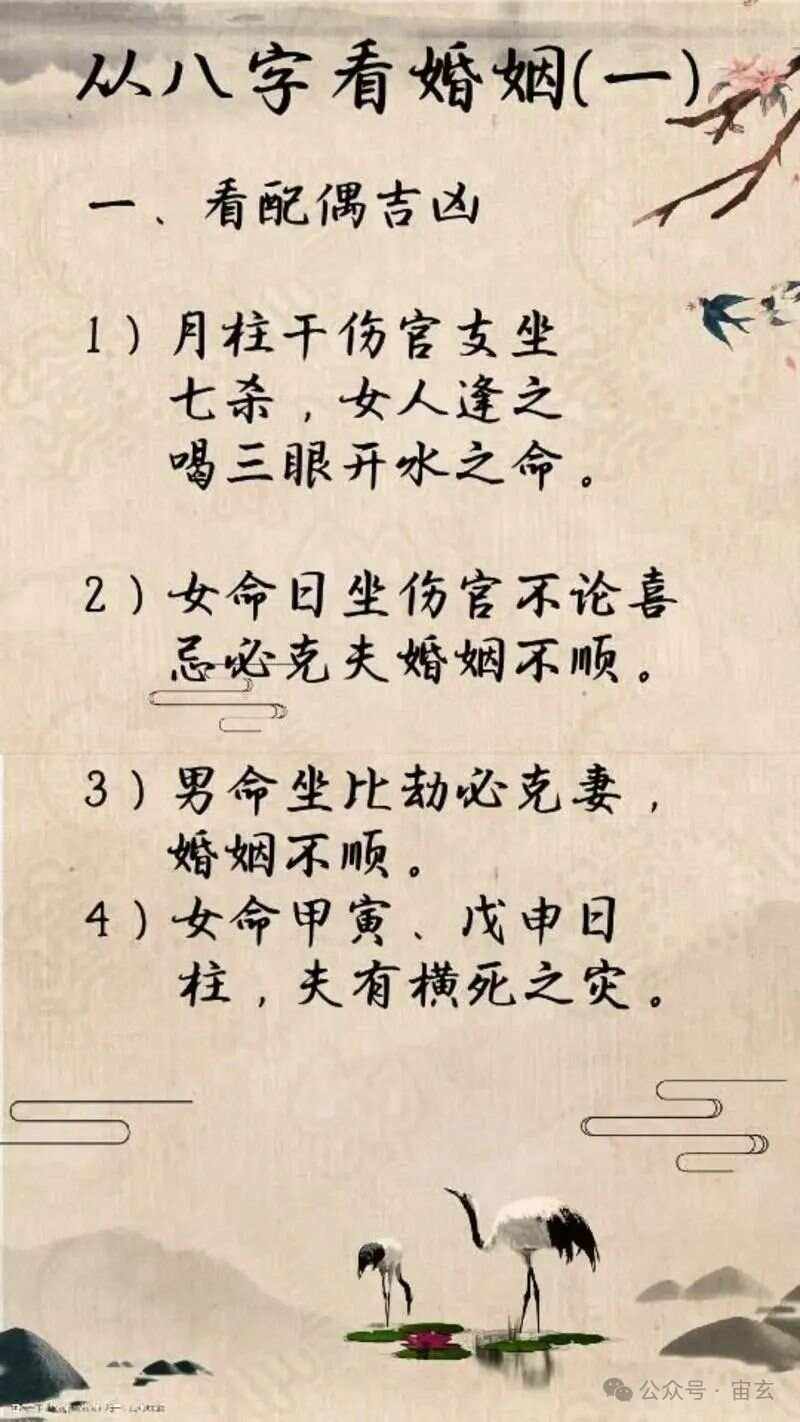 从八字看婚姻(一)
一、看配偶吉凶
1)月柱干伤官支坐
七杀，女人逢之
喝三眼开水之命。
2)女命日坐伤官不论喜
忌必克夫婚姻不顺。
3)男命坐比劫必克妻，
婚姻不顺。
4)女命甲寅、戊申日
柱，夫有横死之灾。
公众号·宙玄